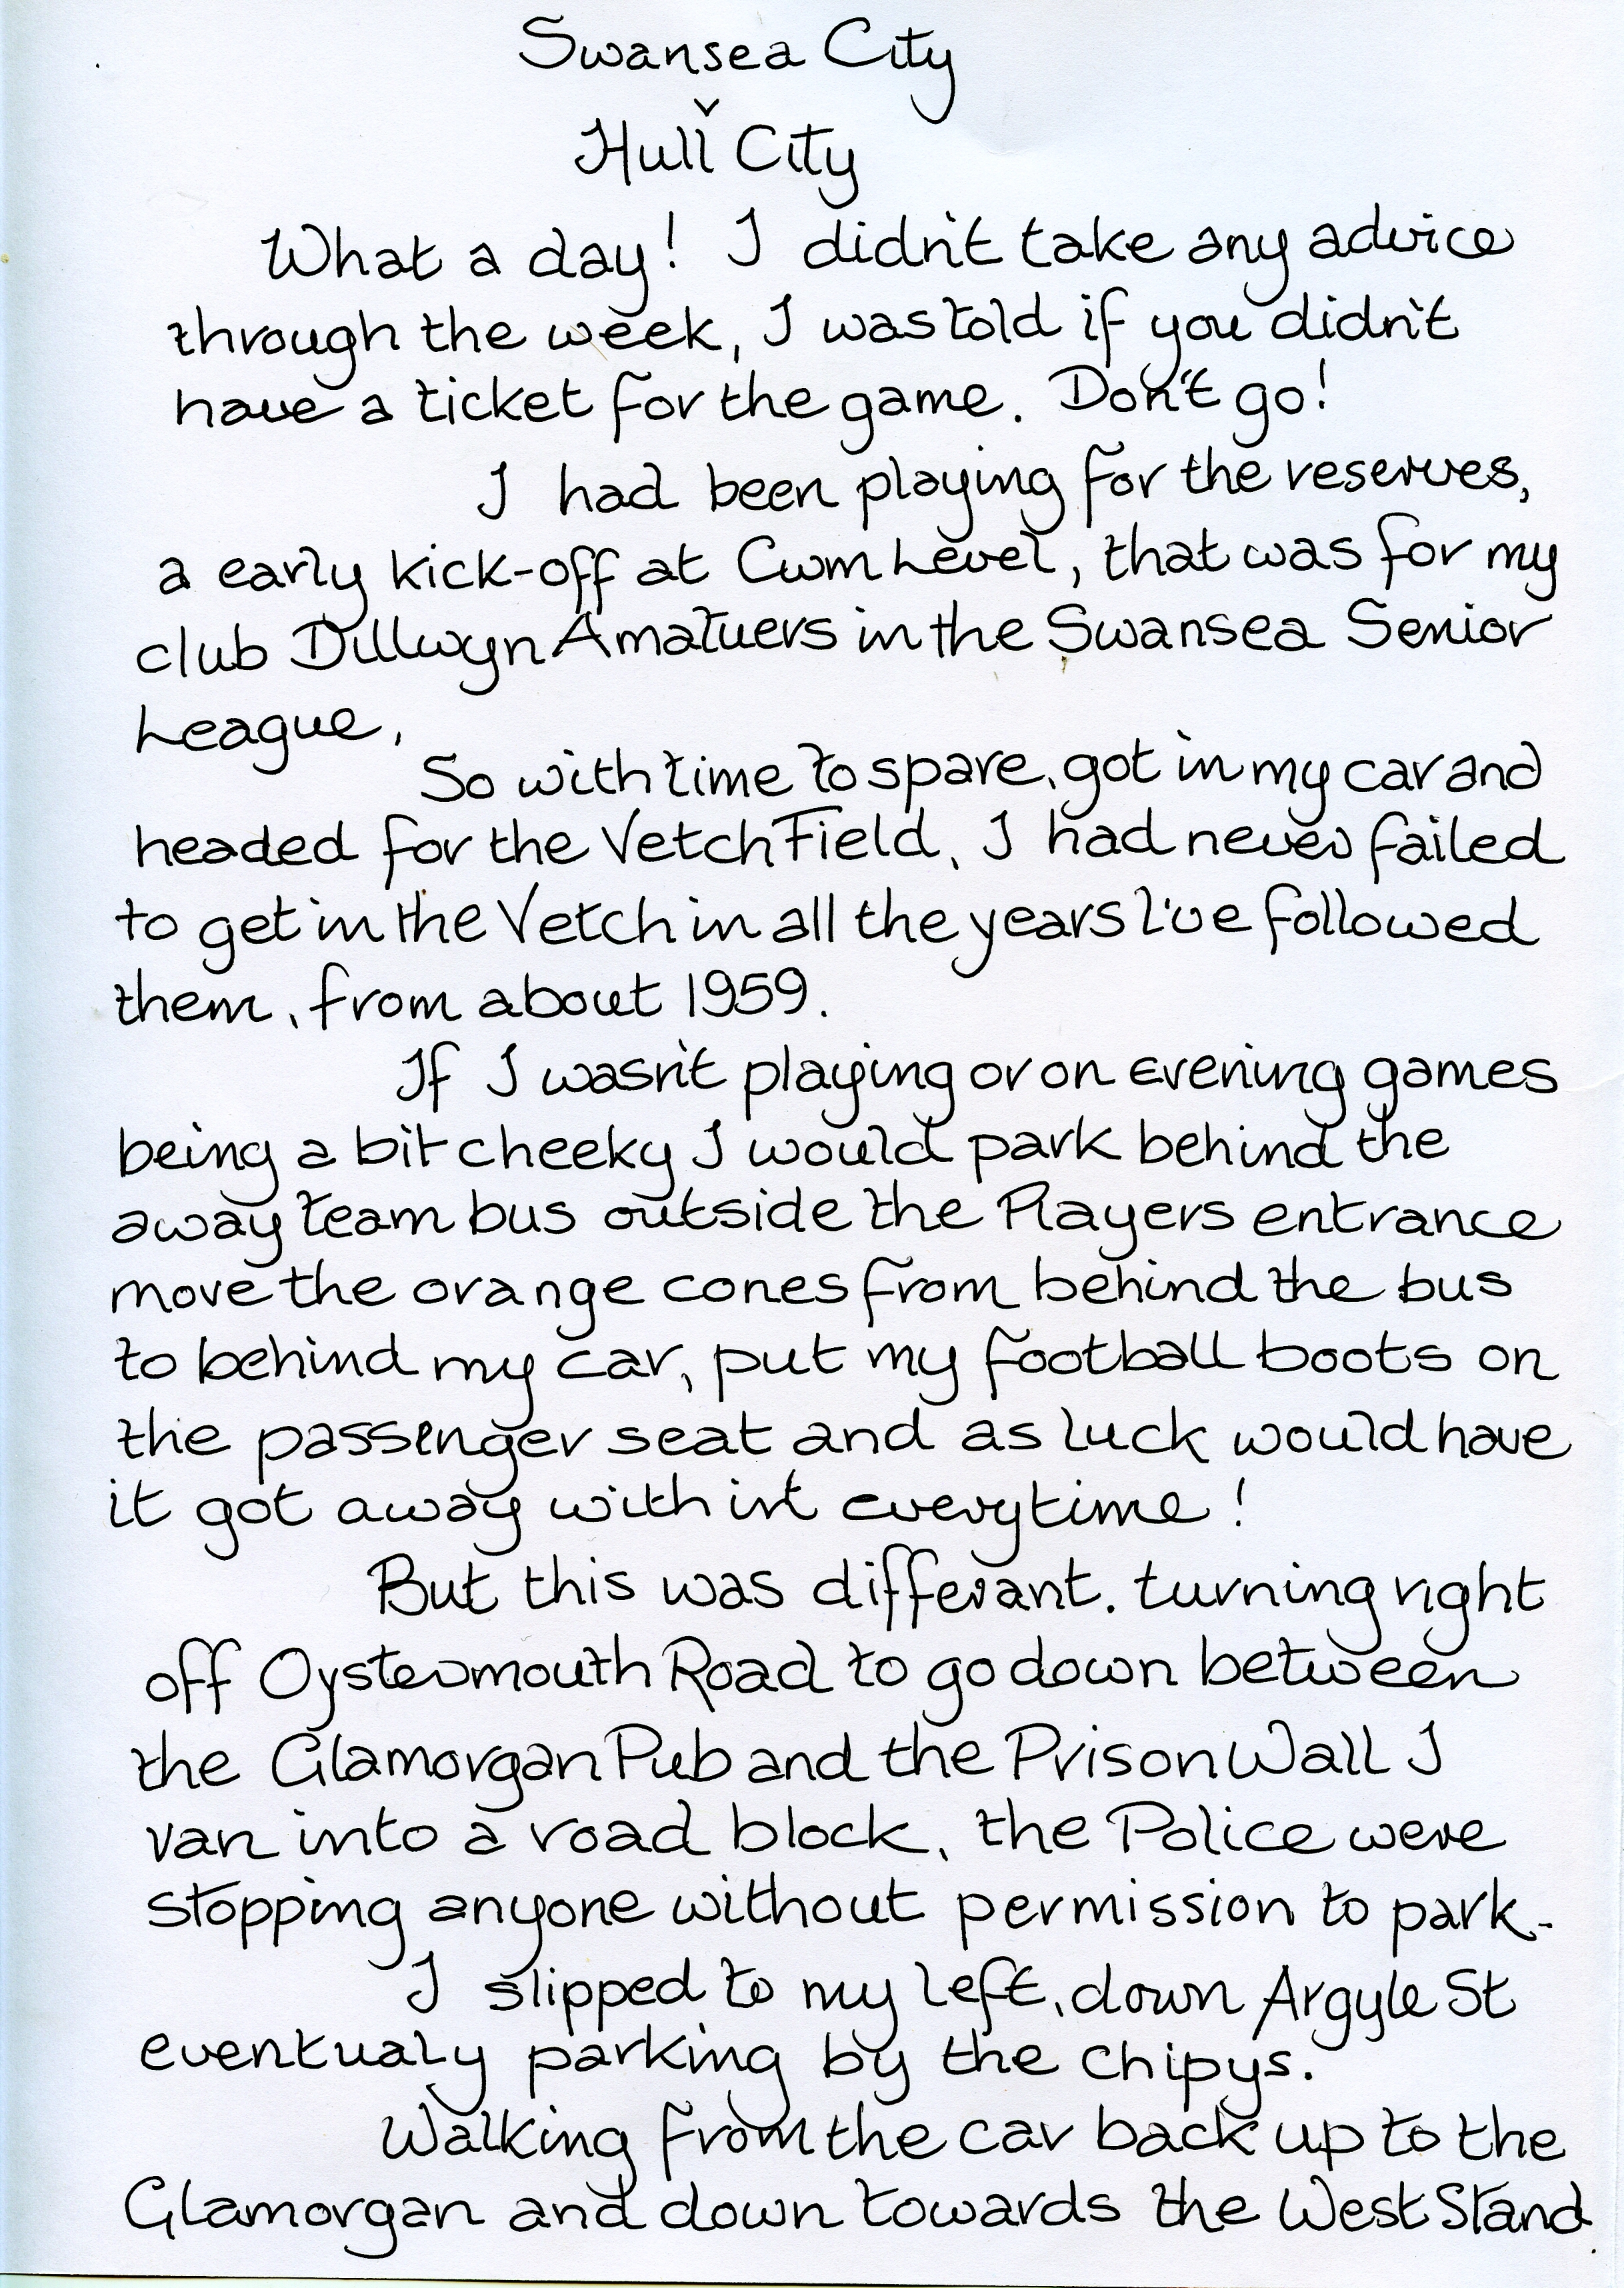 Swansea City
v
Hull City
What a day! I didn't take any advice
through the week, I was told if you didn't
have a ticket for the game. Don't go!
I had been playing for the reserves,
a early kick-off at Cwm Level, that was for my
club Dillwyn Amatuers in the Swansea Senior
League,
So with time to spare, got in my car and
headed for the Vetch Field, I had never failed
to get in the Vetch in all the years I've followed
them, from about 1959.
If I wasn't playing or on evening games
being a bit cheeky I would park behind the
away team bus outside the Players entrance
move the orange cones from behind the bus
to behind my car, put my football boots on
the passenger seat and as luck would have
it got away with it everytime!
But this was differant. turning right
off Oystermouth Road to go down between
the Glamorgan Pub and the Prison Wall I
ran into a road block, the Police were
stopping anyone without permission to park.
I slipped to my left, down Argyle St
eventualy parking by the chipys.
Walking from the car back up to the
Glamorgan and down towards the West Stand.